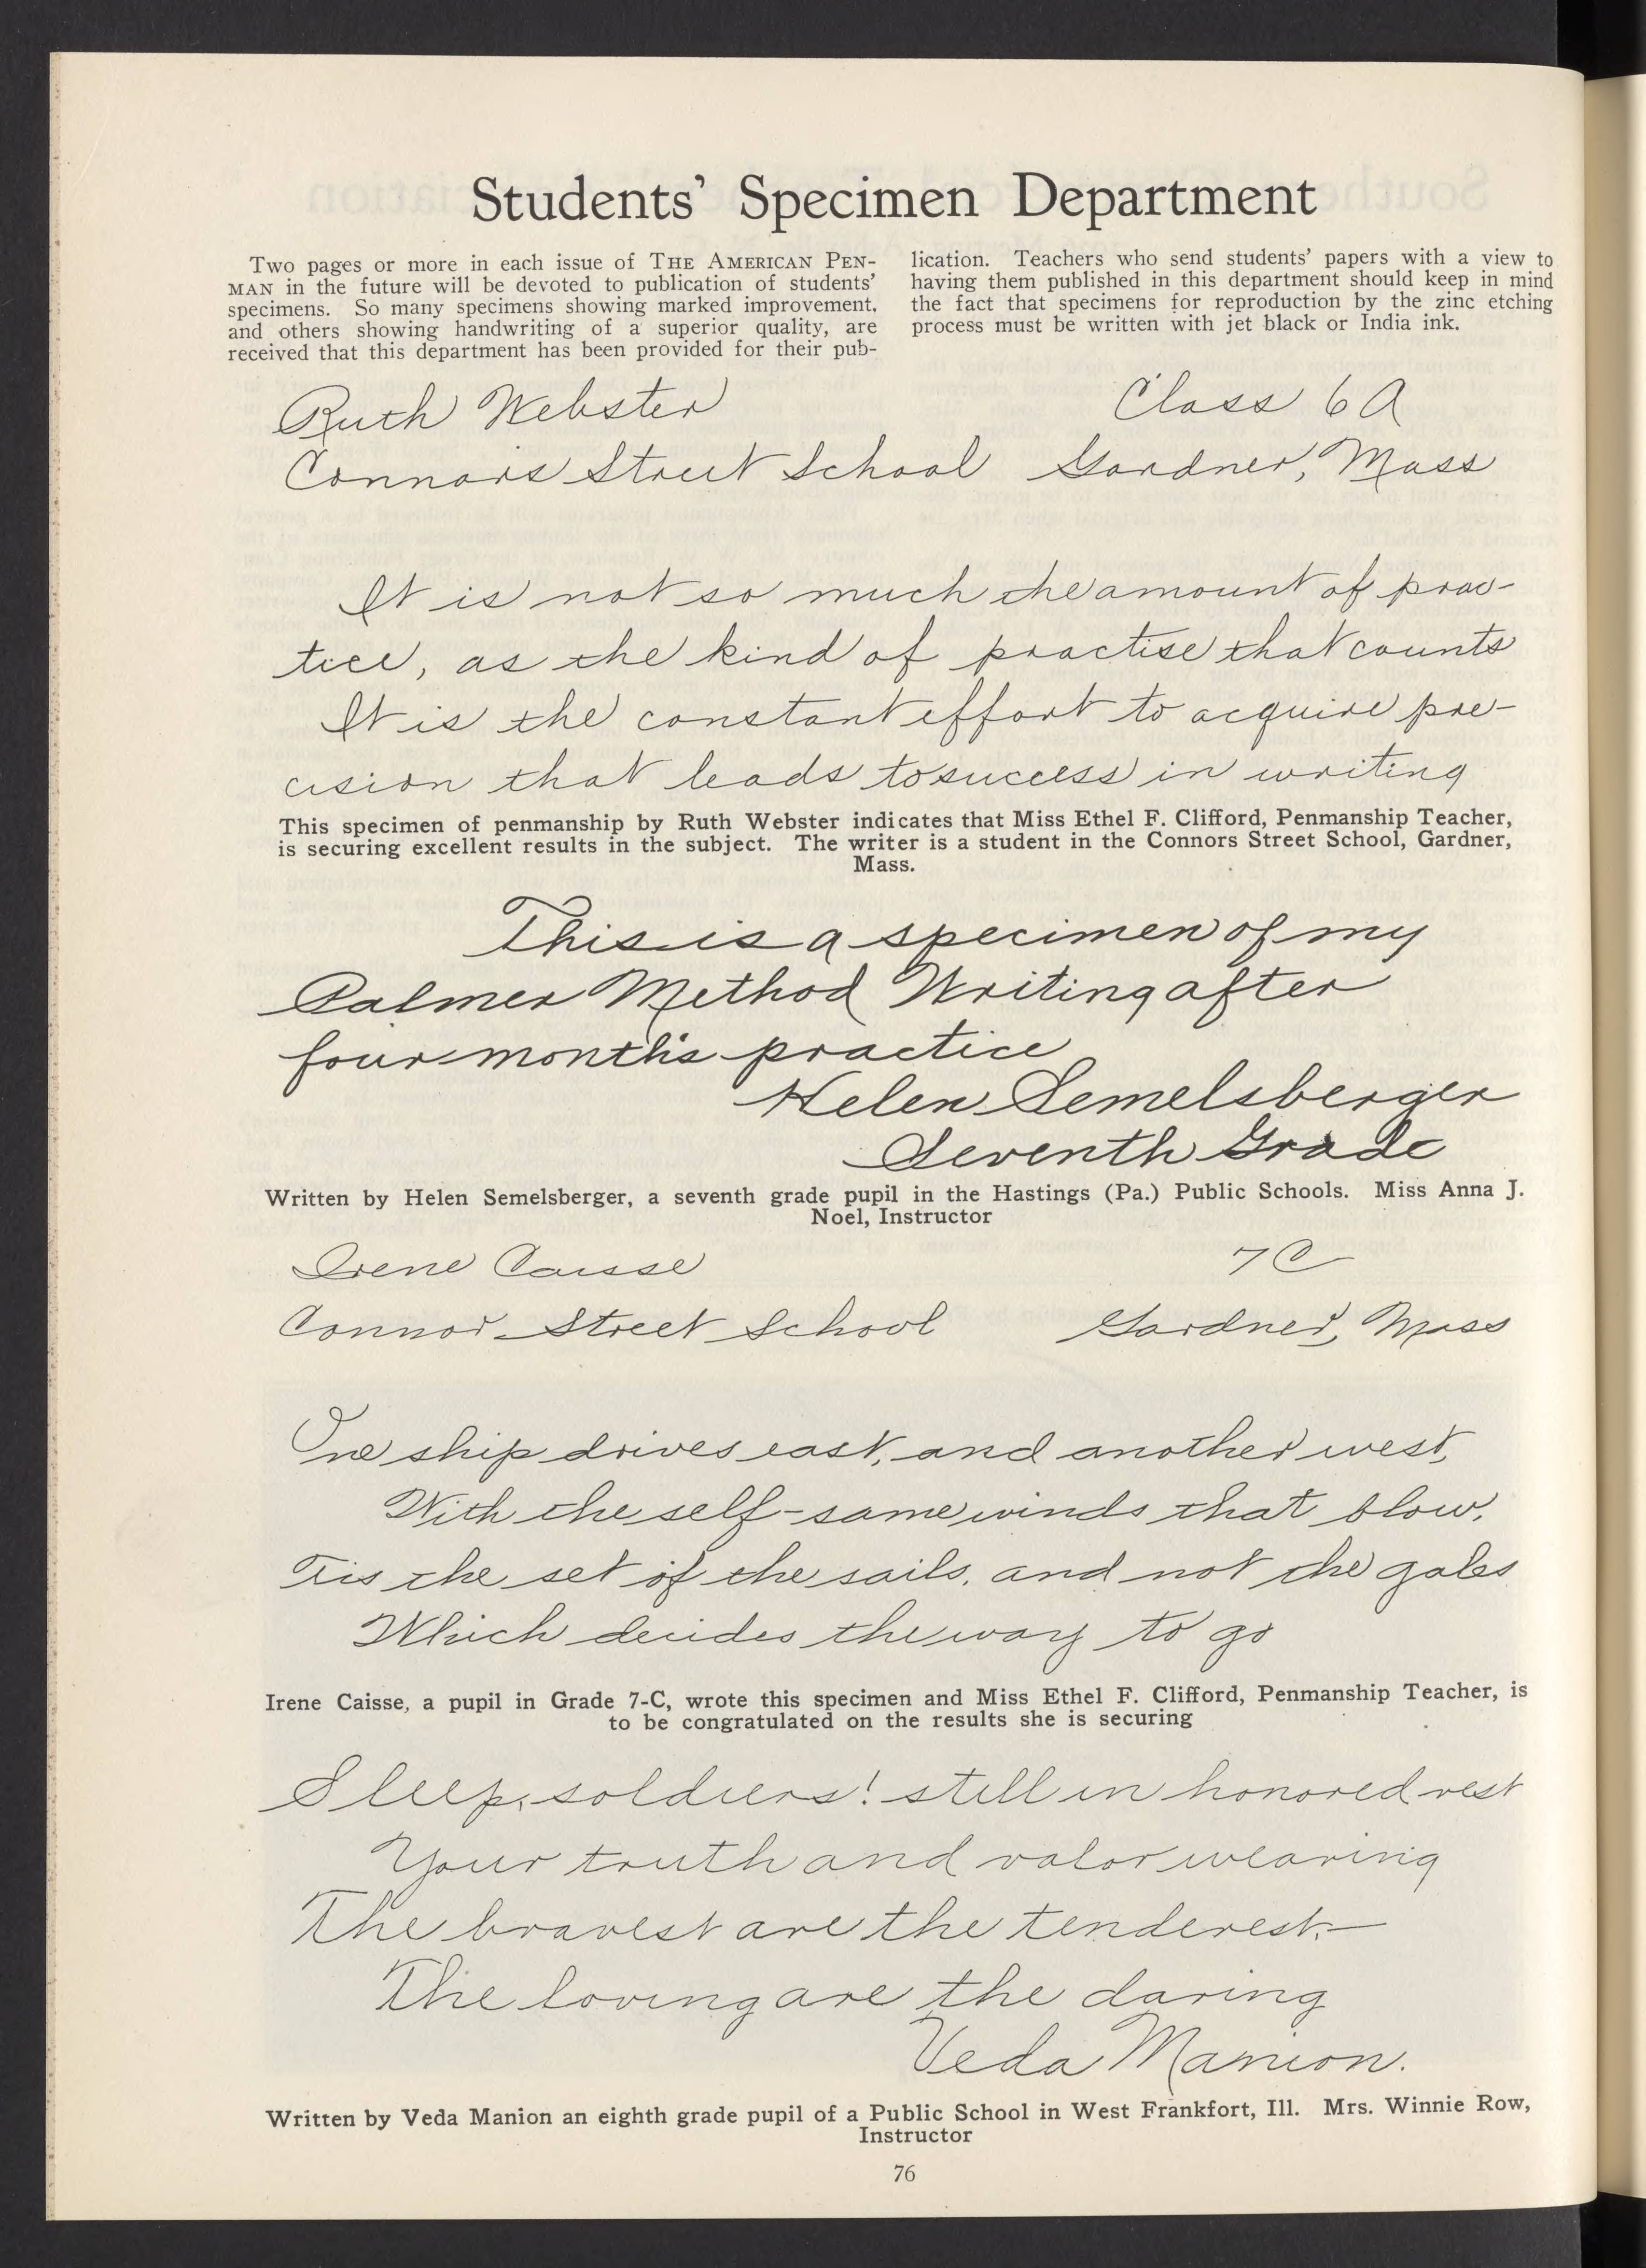 Students' Specimen Department
Two pages or more in each issue of THE AMERICAN PEN-
MAN in the future will be devoted to publication of students'
specimens. So many specimens showing marked improvement,
and others showing handwriting of a superior quality, are
received that this department has been provided for their pub-
lication. Teachers who send students' papers with a view to
having them published in this department should keep in mind
the fact that specimens for reproduction by the zinc etching
process must be written with jet black or India ink.
Ruth Webster Class 6A
Connors Street School Gardner, Mass
It is not so much the amount of prac-
tice, as the kind of practise that counts
It is the constant effort to acquire pre-
cision that leads to success in writing
This specimen of penmanship by Ruth Webster indicates that Miss Ethel F. Clifford, Penmanship Teacher,
is securing excellent results in the subject. The writer is a student in the Connors Street School, Gardner,
Mass.
This is a specimen of my
Palmer Method Writing after
four month's practice
Helen Semelsberger
Seventh Grade
Written by Helen Semelsberger, a seventh grade pupil in the Hastings (Pa.) Public Schools. Miss Anna J.
Noel, Instructor
Irene Caisse 7C
Connor Street School Gardner, Mass
One ship drives east, and another west,
With the self-same winds that blow,
Tis the set of the sails, and not the gales
Which decides the way to go
Irene Caisse, a pupil in Grade 7-C, wrote this specimen and Miss Ethel F. Clifford, Penmanship Teacher, is
to be congratulated on the results she is securing
Sleep, soldiers! still in honored rest
Your truth and valor wearing
The bravest are the tenderest,—
The loving are the daring
Veda Manion.
Written by Veda Manion an eighth grade pupil of a Public School in West Frankfort, Ill. Mrs. Winnie Row,
Instructor
76